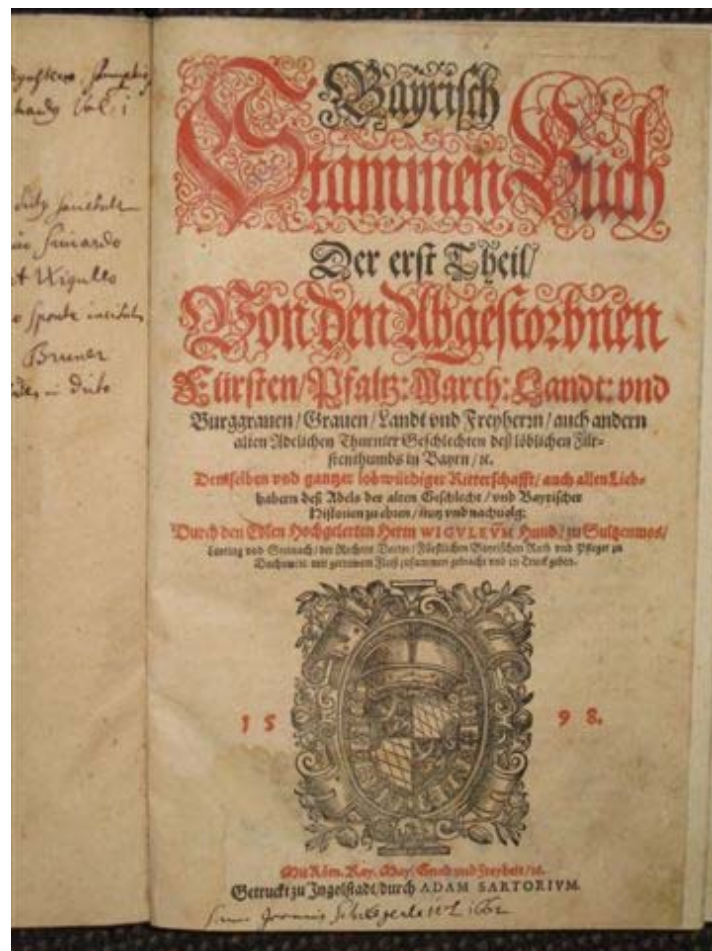 Bayrisch
Stammen Buch
Der erst Theil/
Von den Abgestorbnen
Fürsten/Pfaltz: March: Landt: vnd
Burggrauen/Grauen/Landt vnd Freyherrn/auch andern
alten Adelichen Thurnier Geschlechten deß löblichen Für-
stenthumbs in Bayrn/ꝛc.
Demselben vnd gantzer lobwürdiger Ritterschafft/auch allen Lieb-
habern deß Adels der alten Geschlecht/vnd Bayrischer
Historien zu ehren/nutz vnd nachuolg:
Durch den Edlen Hochgelerten Herrn WIGVLEVM Hund/zu Sultzenmos/
vnd Steinach/der Rechten Doctor/Fürstlichen Bayrischen Rath vnd Pfleger zu
mit getrewem Fleiß zusammen gebracht vnd in Truck geben.
1598.
Mit Röm. Kay. May. Gnad vnd Freyheit/ꝛc.
Getruckt zu Ingolstadt/durch ADAM SARTORIVM.
Bruner
1662